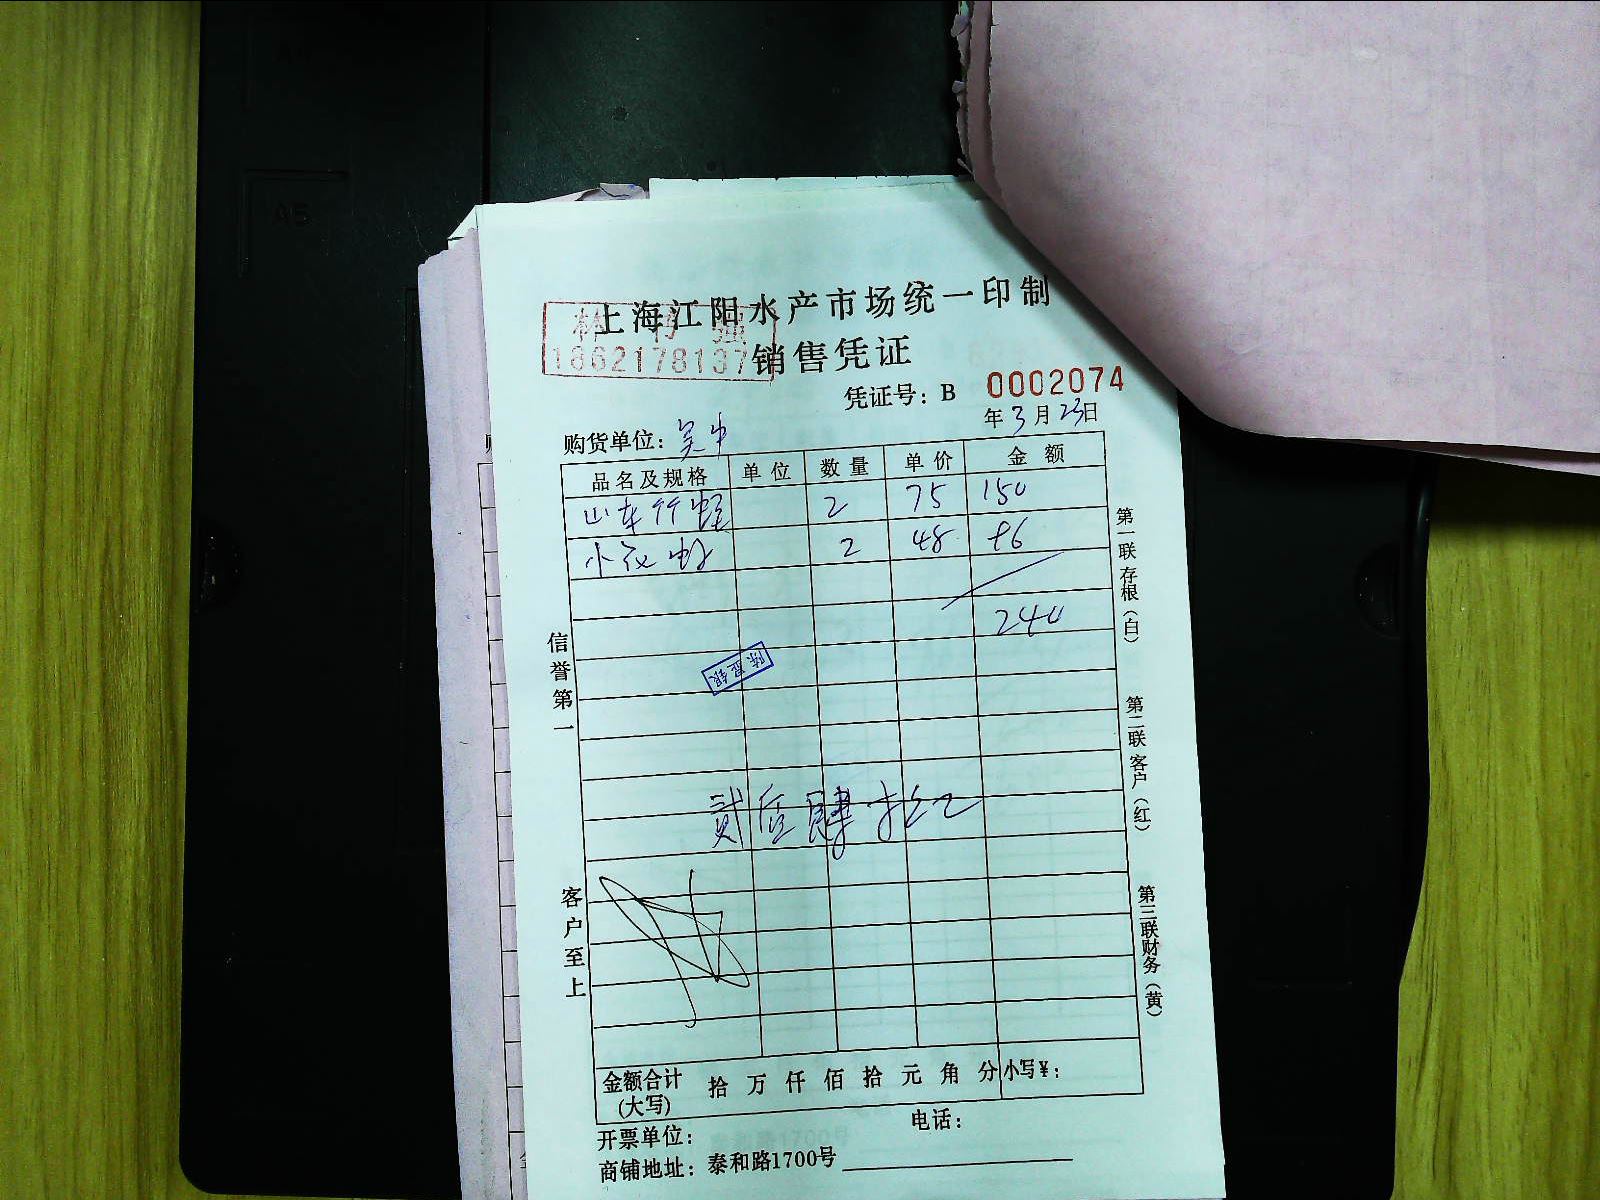 上海江阳水产市场统一印制
林 强
1862178137
销售凭证
凭证号：B 0002074
年3月23日
购货单位：吴中
品名及规格 单位 数量 单价 金额
山东竹蛏 2 75 150
小花虾 2 48 96
240
陈亚银
贰佰肆拾元
信誉第一
客户至上
第一联存根（白）
第二联客户（红）
第三联财务（黄）
金额合计(大写) 拾 万 仟 佰 拾 元 角 分 小写¥：
开票单位： 电话：
商铺地址：泰和路1700号
A5